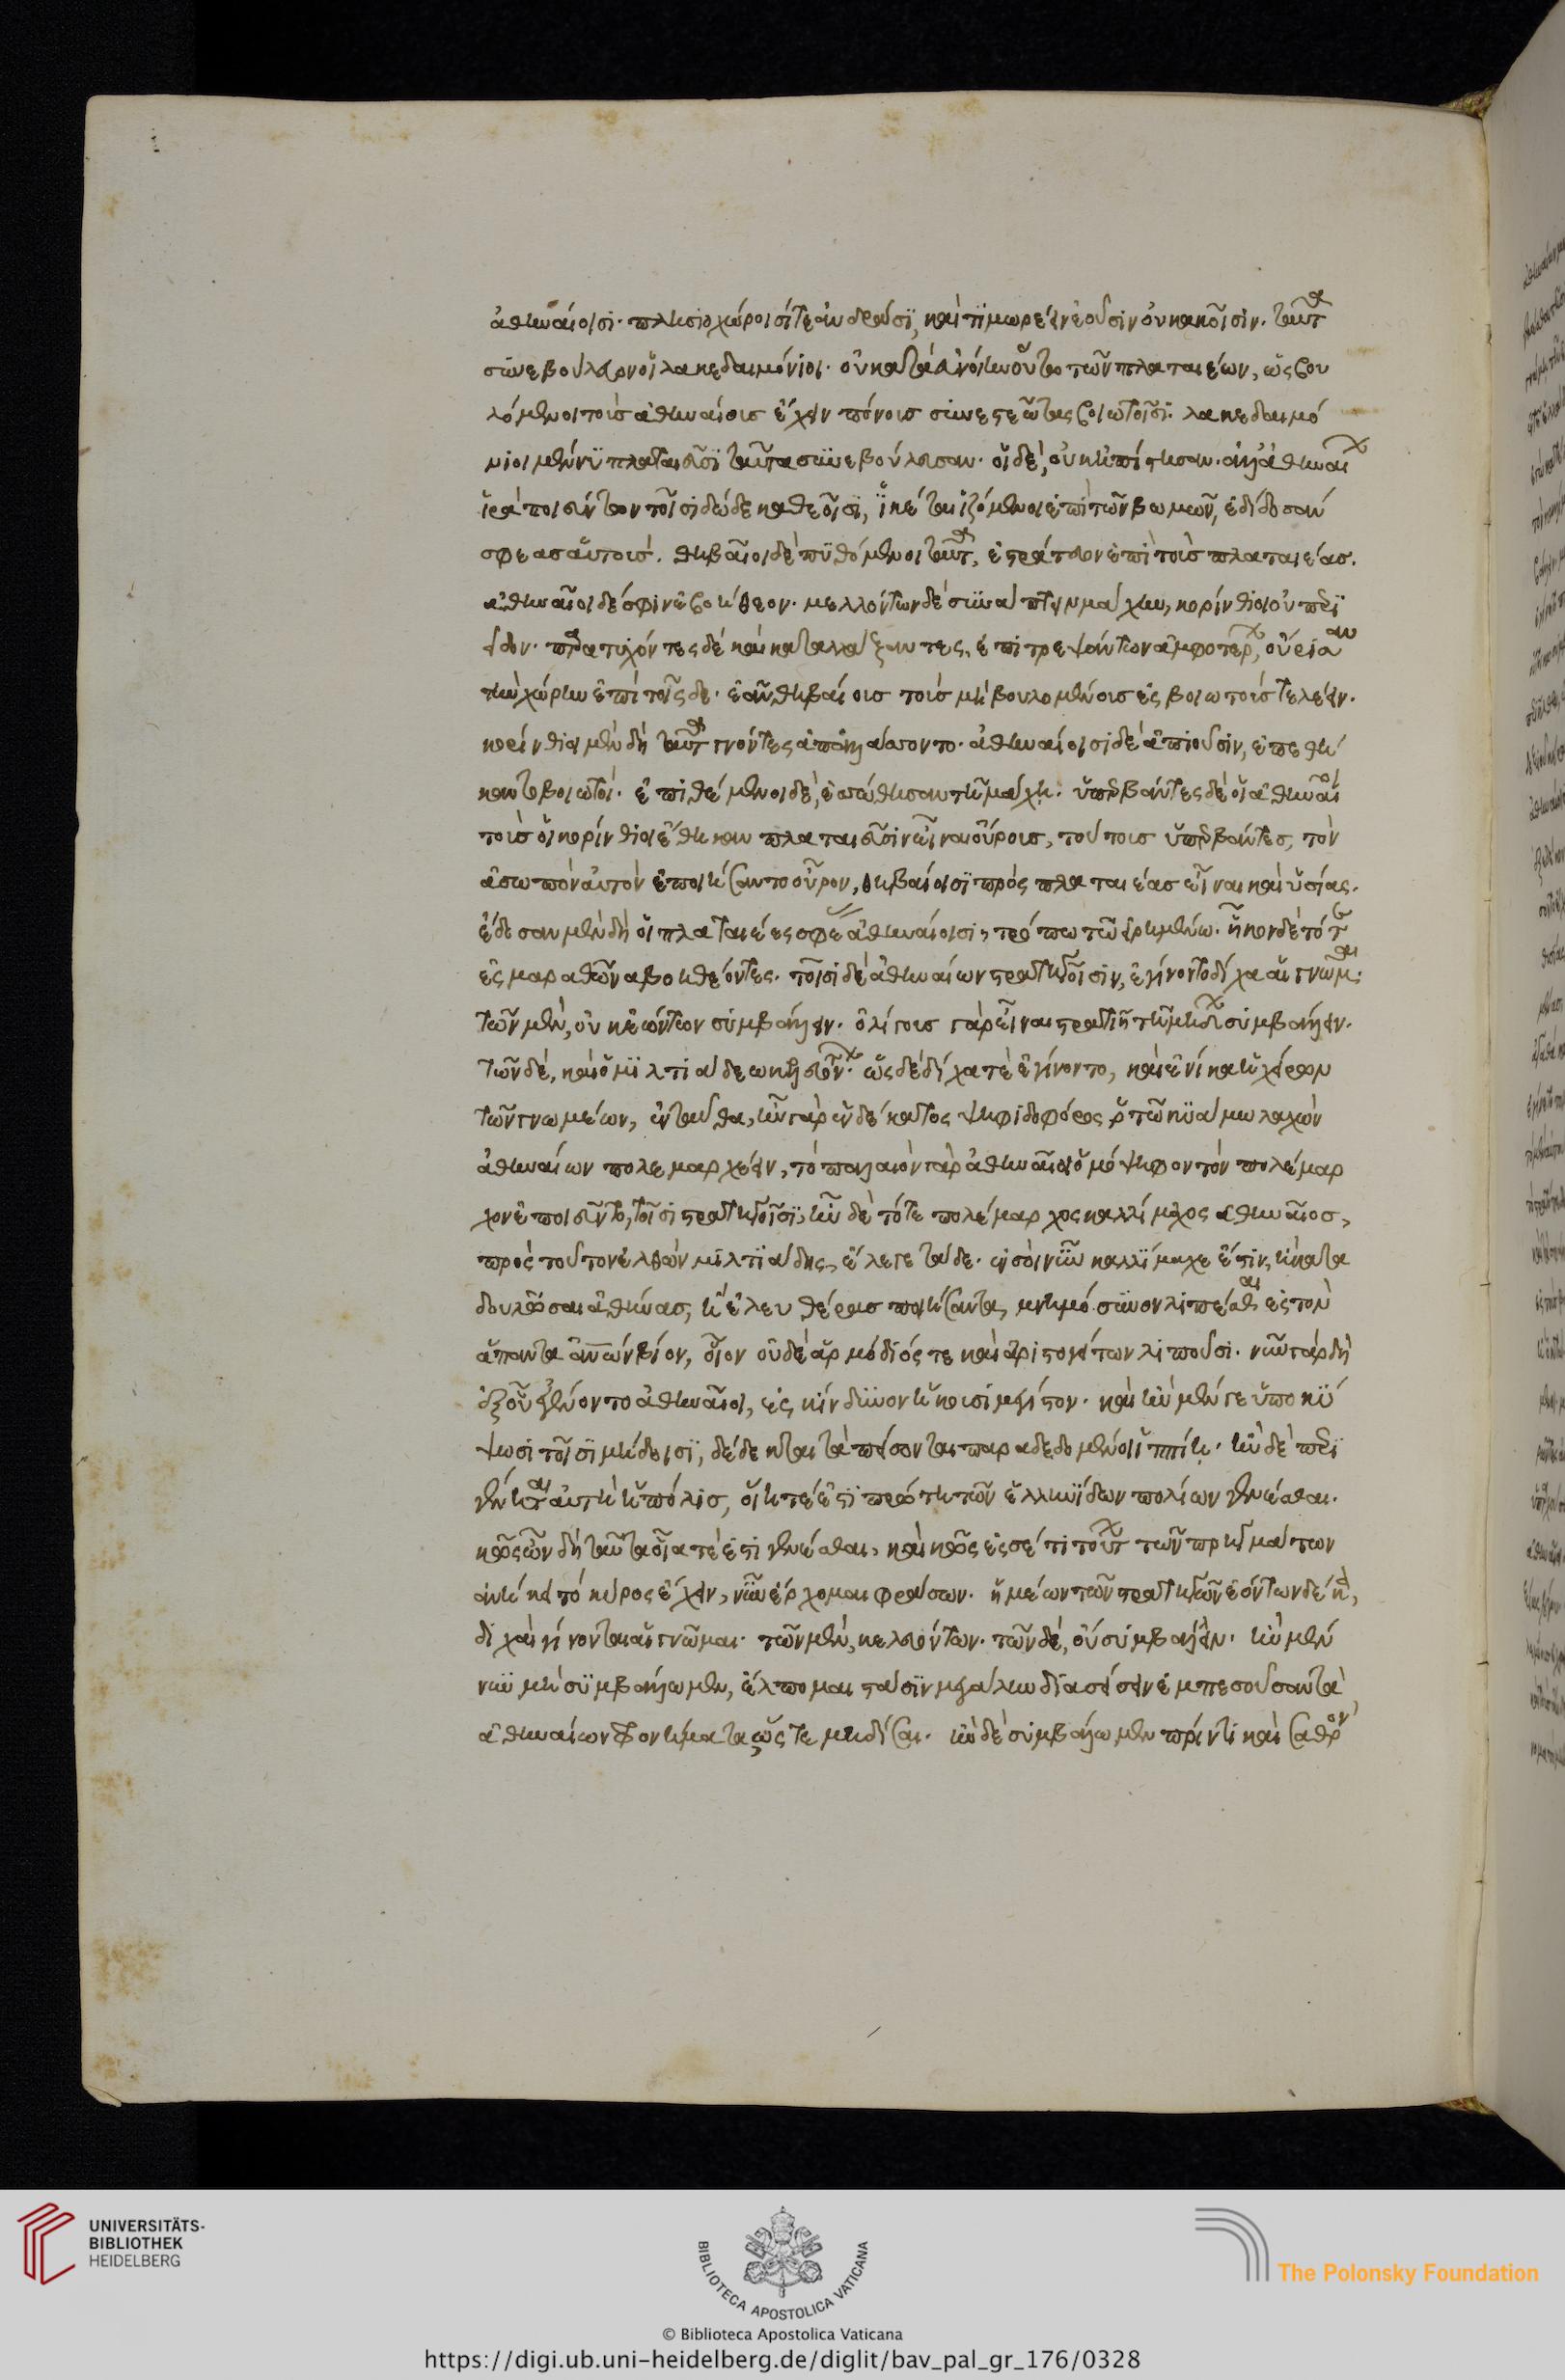 ἀθηναίοισι· πλησιοχώροισί τε ἀνδράσι, καὶ τιμωρέειν ἐοῦσιν οὐ κακοῖσιν. ταῦτα
συνεβούλευον οἱ λακεδαιμόνιοι· οὐ κατὰ εὐνοίην οὕτω τῶν πλαταιέων, ὡς βου
λόμενοι τοὺς ἀθηναίους ἔχειν πόνους συνεστεῶτας βοιωτοῖσι· λακεδαιμό
νιοι μέν νυ πλαταιεῦσι ταῦτα συνεβούλευσαν· οἱ δὲ, οὐκ ἠπίστησαν· ἀλλ' ἀθηναίων
ἱρὰ ποιεύντων τοῖσι δώδεκα θεοῖσι, ἱκέται ἱζόμενοι ἐπὶ τῶν βωμῶν, ἐδίδοσαν
σφέας αὐτούς. θηβαῖοι δὲ πυθόμενοι ταῦτα, ἐστράτευον ἐπὶ τοὺς πλαταιέας.
ἀθηναῖοι δέ σφιν ἐβοήθεον· μελλόντων δὲ συνάπτειν μάχην, κορίνθιοι οὐ περιεῖ
δον· παρατυχόντες δὲ καὶ καταλλάξαντες, ἐπιτρεψάντων ἀμφοτέρων, οὔρισαν
τὴν χώρην ἐπὶ τοῖςδε· ἐᾶν θηβαίους τοὺς μὴ βουλομένους ἐς βοιωτοὺς τελέειν·
κορίνθιοι μὲν δὴ ταῦτα γνόντες ἀπαλλάσσοντο· ἀθηναίοισι δὲ ἀπιοῦσιν, ἐπεθή
καντο βοιωτοί· ἐπιθέμενοι δὲ, ἑσσώθησαν τῇ μάχῃ· ὑπερβάντες δὲ οἱ ἀθηναῖοι
τοὺς οἱ κορίνθιοι ἔθηκαν πλαταιεῦσιν εἶναι οὔρους, τούτους ὑπερβάντες, τὸν
ἀσωπὸν αὐτὸν ἐποιήσαντο οὖρον, θηβαίοισι πρὸς πλαταιέας εἶναι καὶ ὑσίας.
ἔδοσαν μὲν δὴ οἱ πλαταιέες σφέας ἀθηναίοισι, τρόπω τῶ εἰρημένω· ἧκον δὲ τότε
ἐς μαραθῶνα βοηθέοντες. τοῖσι δὲ ἀθηναίων στρατηγοῖσιν, ἐγίνοντο δίχα αἱ γνῶμαι·
τῶν μὲν, οὐκ ἐώντων συμβάλλειν· ὀλίγους γὰρ εἶναι στρατιῆ τῆ μήδων συμβάλλειν.
τῶν δὲ, καὶ ὁ μιλτιάδεω κελευόντων. ὡς δὲ δίχα τὲ ἐγίνοντο, καὶ ἐνίκα ἡ χείρων
τῶν γνωμέων, ἐνταῦθα, ἦν γὰρ ἑνδέκατος ψηφιδοφόρος ὁ τῶ κυάμω λαχὼν
ἀθηναίων πολεμαρχέειν, τὸ παλαιὸν γὰρ ἀθηναῖοι ὁμόψηφον τὸν πολέμαρ
χον ἐποιεῦντο, τοῖσι στρατηγοῖσι, ἦν δὲ τότε πολέμαρχος καλλίμαχος ἀθηναῖος,
πρὸς τοῦτον ἐλθὼν μιλτιάδης, ἔλεγε τάδε· ἐν σοὶ νῦν καλλίμαχε ἔστιν, ἢ κατα
δουλῶσαι ἀθήνας, ἢ ἐλευθέρας ποιήσαντα, μνημόσυνον λιπέσθαι ἐς τὸν
ἅπαντα ἀνων βίον, οἷον οὐδὲ ἁρμόδιός τε καὶ ἀριστογείτων λιποῦσι. νῦν γὰρ δὴ
ἐξ οὗ ἐγένοντο ἀθηναῖοι, ἐς κίνδυνον ἥκουσι μέγιστον· καὶ ἢν μέν γε ὑποκύ
ψωσι τοῖσι μήδοισι, δέδεκται τὰ πείσονται παραδεδομένοι ἱππίῃ· ἢν δὲ περι
γένηται αὕτη ἡ πόλις, οἵη τέ ἐστι πρώτη τῶν ἑλληνίδων πολίων γενέσθαι.
κῶς ὦν δὴ ταῦτα οἷά τέ ἐστι γενέσθαι, καὶ κῶς ἐς σέ τι τούτων τῶν πρηγμάτων
ἀνήκει τὸ κῦρος ἔχειν, νῦν ἔρχομαι φράσων. ἡμέων τῶν στρατηγῶν ἐόντων δέκα,
δίχα γίνονται αἱ γνῶμαι· τῶν μὲν, κελευόντων· τῶν δὲ, οὐ συμβάλλειν· ἢν μέν
νυν μὴ συμβάλλωμεν, ἔλπομαι στάσιν μεγάλην διασείσειν ἐμπεσοῦσαν τὰ
ἀθηναίων φρονήματα ὥςτε μηδίσαι. ἢν δὲ συμβάλλωμεν πρίν τι καὶ σαθρὸν
UNIVERSITÄTS-
BIBLIOTHEK
HEIDELBERG
BIBLIOTECA APOSTOLICA VATICANA
The Polonsky Foundation
© Biblioteca Apostolica Vaticana
https://digi.ub.uni-heidelberg.de/diglit/bav_pal_gr_176/0328